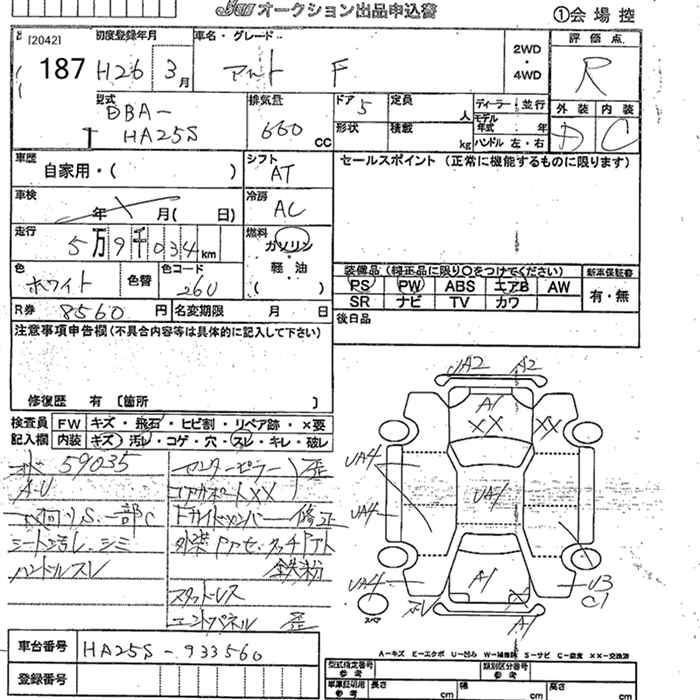 JU オークション出品申込書
①会場控
[2042]
187
初度登録年月
H26 3月
車名・グレード
アルト F
2WD
・
4WD
評価点
R
型式
DBA-
HA25S
排気量
660 CC
ドア 5
定員 人
形状
積載 kg
ディーラー・並行
モデル年式 年
ハンドル 左・右
外装 内装
D C
車歴
自家用・( )
シフト
AT
セールスポイント (正常に機能するものに限ります)
車検
年 月( 日)
冷房
AC
走行
5万9千034km
燃料
ガソリン
軽油
( )
色
ホワイト
色替
色コード
26U
装備品(純正品に限り○をつけてください)
新車保証書
PS PW ABS エアB AW
SR ナビ TV カワ
有・無
R券 8560 円
名変期限 月 日
後日品
注意事項申告欄(不具合内容等は具体的に記入して下さい)
修復歴 有 〔箇所 〕
検査員
記入欄
FW キズ・飛石・ヒビ割・リペア跡・×要
内装 キズ・汚レ・コゲ・穴・スレ・キレ・破レ
59035
A-U
シート汚レ、シミ
ハンドルスレ
センターピラー 歪
コアサポートXX
サイドメンバー 修正
鉄粉
スタッドレス
エンドパネル 歪
UA2 A2
A1
XX XX
UA4
UA4
UA4
UA4
A1
U3
C1
A1
スペア
A-キズ E-エクボ U-凹ミ W-補修跡 S-サビ C-腐食 XX-交換済
車台番号 HA25S-933560
登録番号
型式指定番号
参考
類別区分番号
参考
車庫証明用
参考
長さ cm
幅 cm
高さ cm